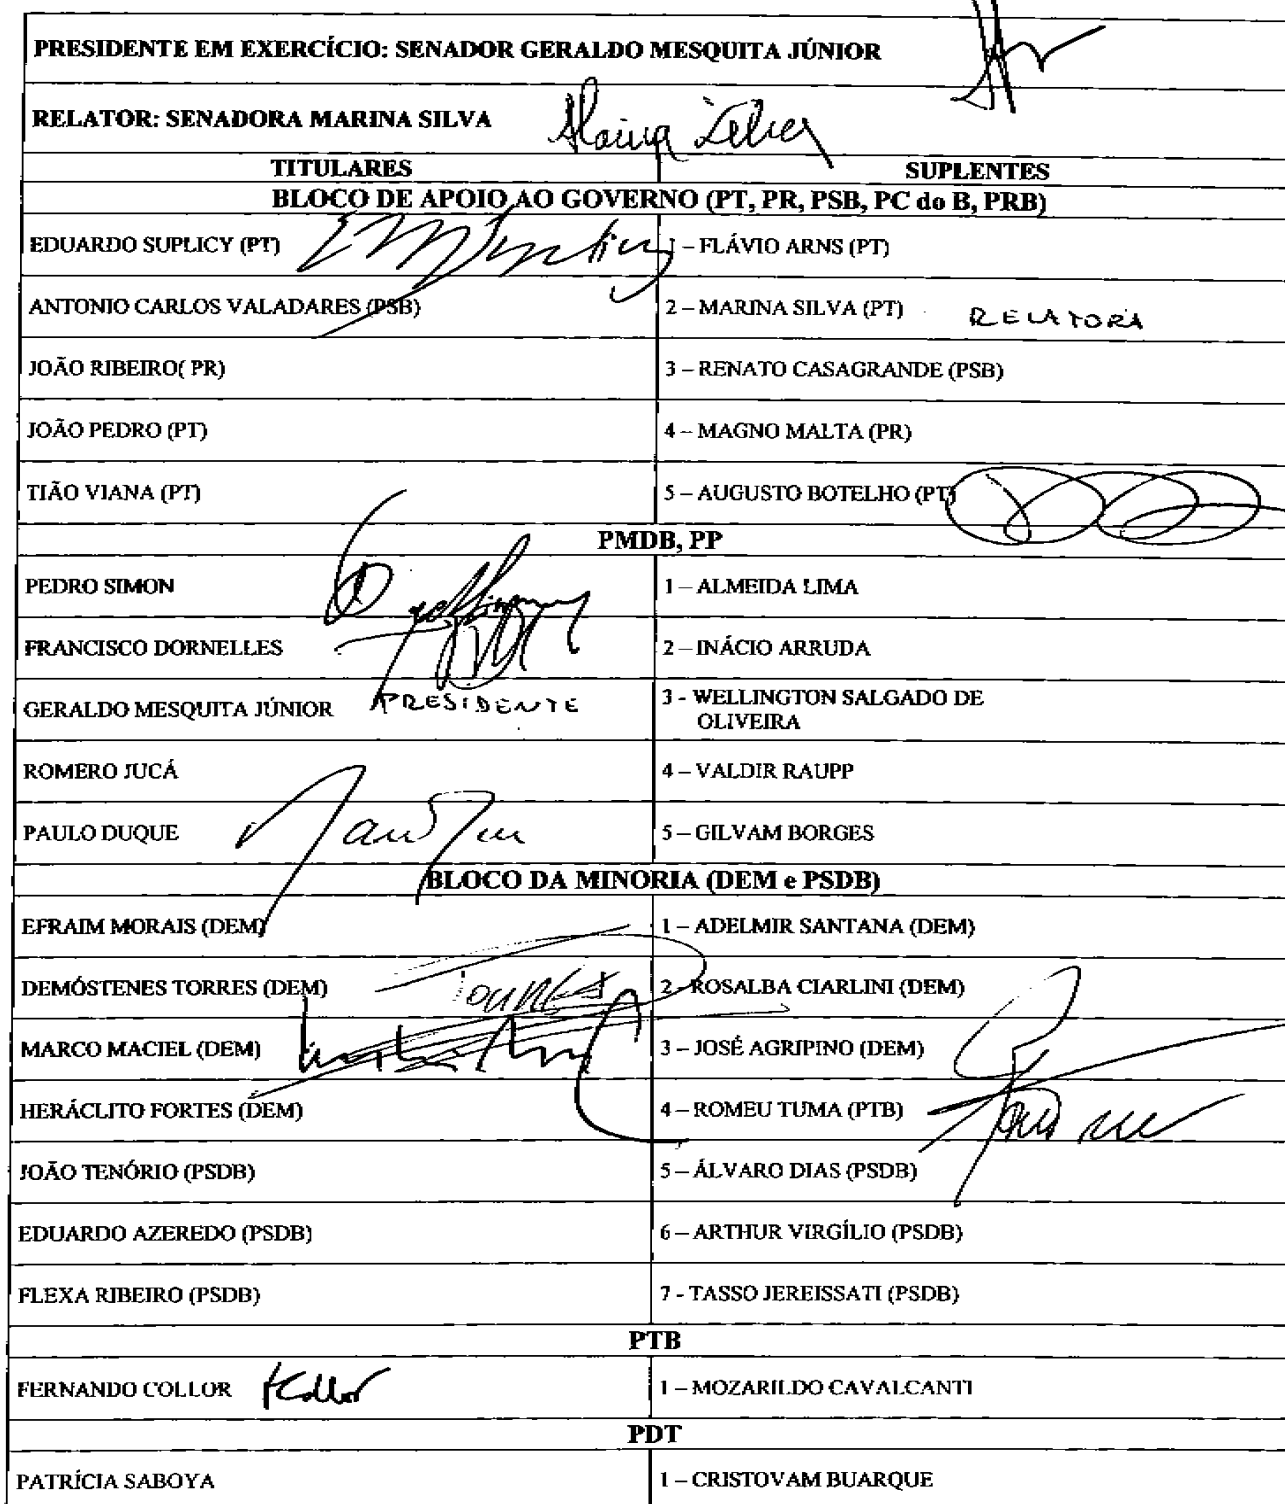 PRESIDENTE EM EXERCÍCIO: SENADOR GERALDO MESQUITA JÚNIOR
RELATOR: SENADORA MARINA SILVA
TITULARES SUPLENTES
BLOCO DE APOIO AO GOVERNO (PT, PR, PSB, PC do B, PRB)
EDUARDO SUPLICY (PT) 1 – FLÁVIO ARNS (PT)
ANTONIO CARLOS VALADARES (PSB) 2 – MARINA SILVA (PT) RELATORA
JOÃO RIBEIRO( PR) 3 – RENATO CASAGRANDE (PSB)
JOÃO PEDRO (PT) 4 – MAGNO MALTA (PR)
TIÃO VIANA (PT) 5 – AUGUSTO BOTELHO (PT)
PMDB, PP
PEDRO SIMON 1 – ALMEIDA LIMA
FRANCISCO DORNELLES 2 – INÁCIO ARRUDA
GERALDO MESQUITA JÚNIOR PRESIDENTE 3 - WELLINGTON SALGADO DE
OLIVEIRA
ROMERO JUCÁ 4 – VALDIR RAUPP
PAULO DUQUE 5 – GILVAM BORGES
BLOCO DA MINORIA (DEM e PSDB)
EFRAIM MORAIS (DEM) 1 – ADELMIR SANTANA (DEM)
DEMÓSTENES TORRES (DEM) 2 - ROSALBA CIARLINI (DEM)
MARCO MACIEL (DEM) 3 – JOSÉ AGRIPINO (DEM)
HERÁCLITO FORTES (DEM) 4 – ROMEU TUMA (PTB)
JOÃO TENÓRIO (PSDB) 5 – ÁLVARO DIAS (PSDB)
EDUARDO AZEREDO (PSDB) 6 – ARTHUR VIRGÍLIO (PSDB)
FLEXA RIBEIRO (PSDB) 7 - TASSO JEREISSATI (PSDB)
PTB
FERNANDO COLLOR FCollor 1 – MOZARILDO CAVALCANTI
PDT
PATRÍCIA SABOYA 1 – CRISTOVAM BUARQUE